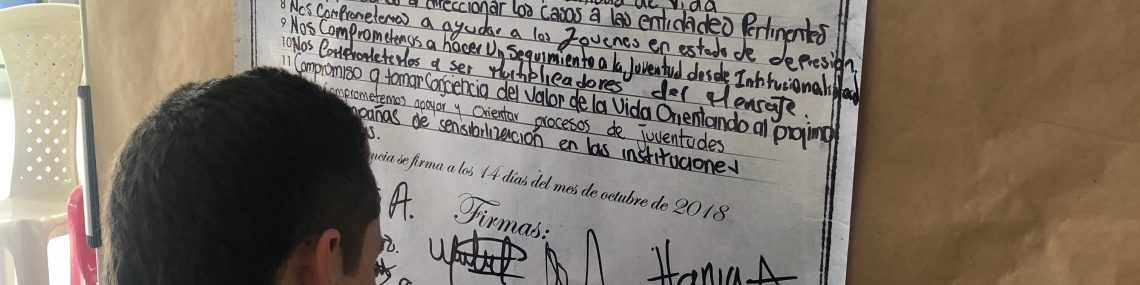 de Vida
direccionar los Casos a las entidades Pertinentes
8 Nos Comprometemos a ayudar a los Jovenes en estado de depresión,
9 Nos Comprometemos a hacer Un Seguimiento a la Juventud desde Intitucionalidad
10 Nos Comprometemos a ser Multiplicadores del Mensaje.
11 Compromiso a tomar Conciencia del Valor de la Vida Orientando al projimo
Comprometemos apoyar y Orientar procesos de juventudes
Campañas de sensibilización en las instituciones
se firma a los 14 días del mes de octubre de 2018
A.
Firmas:
Hania A